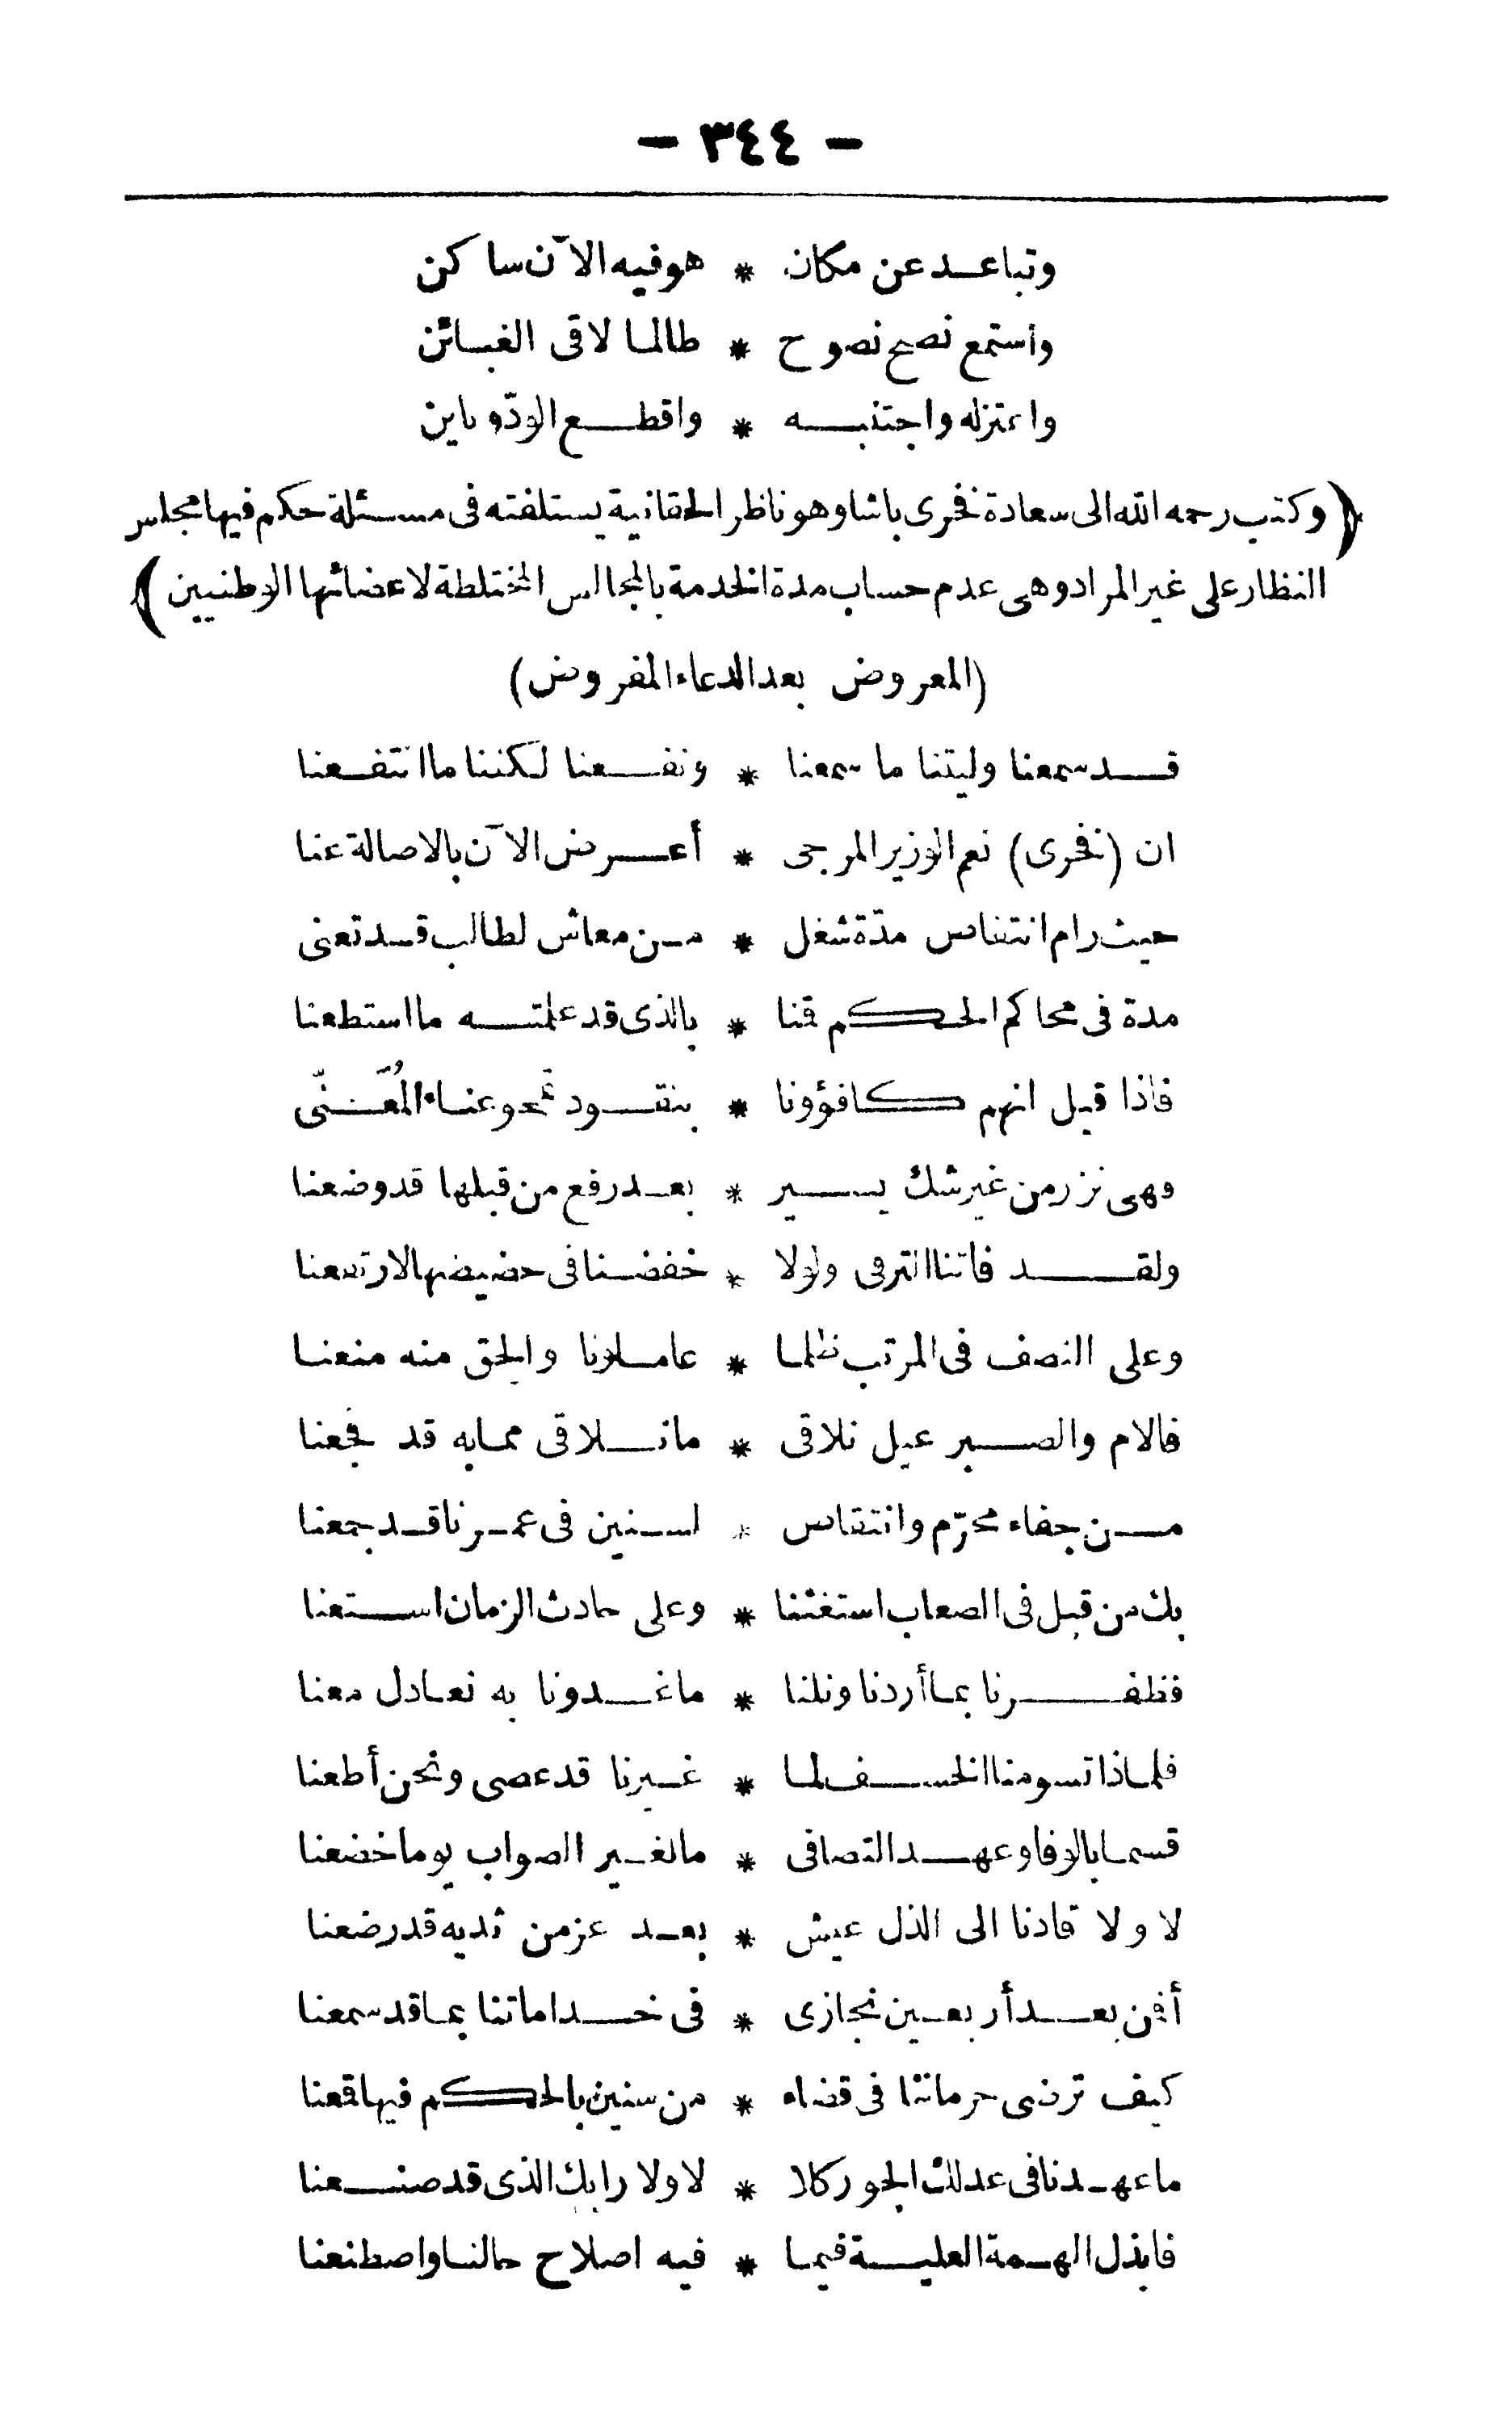 - ٣٤٤ -
وتباعد عن مكان * هو فيه الآن ساكن
واستمع نصح نصوح * طالما لاقى الغبائن
واعتزله واجتنبه * واقطع الودّ وباين
(وكتب رحمه الله الى سعادة فخرى باشا وهو ناظر الحقانية يستلفته فى مسئلة حكم فيها مجلس
النظار على غير المراد وهى عدم حساب مدة الخدمة بالمجالس المختلطة لاعضائها الوطنيين)
(المعروض بعد الدعاء المفروض)
قد سمعنا وليتنا ما سمعنا * ونفعنا لكننا ما انتفعنا
ان (فخرى) نعم الوزير المرجى * أعرض الآن بالاصالة عنا
حيث رام انتقاص مدّة شغل * من معاش لطالب قد تعنى
مدة فى محاكم الحكم قنا * بالذى قد علمته ما استطعنا
فاذا قيل انهم كافؤونا * بنقود تمحو عناء المُعَنّى
وهى نزر من غير شك يسير * بعد رفع من قبلها قد وضعنا
ولقد فاتنا الترقى ولولا * خفضنا فى حضيضها لارتفعنا
وعلى النصف فى المرتب ظلما * عاملونا والحق منه منعنا
فالام والصبر عيل نلاقى * ما نلاقى مما به قد فجعنا
من جفاء محرّم وانتقاص * لسنين فى عمرنا قد جمعنا
بك من قبل فى الصعاب استغثنا * وعلى حادث الزمان استعنا
فظفرنا بما أردنا ونلنا * ما غدونا به نعادل معنا
فلماذا تسومنا الخسف لما * غيرنا قد عصى ونحن أطعنا
قسما بالوفا وعهد التصافى * ما لغير الصواب يوما خضعنا
لا ولا قادنا الى الذل عيش * بعد عز من ثديه قد رضعنا
أفمن بعد أربعين نجازى * فى خداماتنا بما قد سمعنا
كيف ترضى حرماننا فى قضاء * من سنين بالحكم فيها قعنا
ما عهدنا فى عدلك الجور كلا * لا ولا رابك الذى قد صنعنا
فابذل الهمة العلية فيما * فيه اصلاح حالنا واصطنعنا